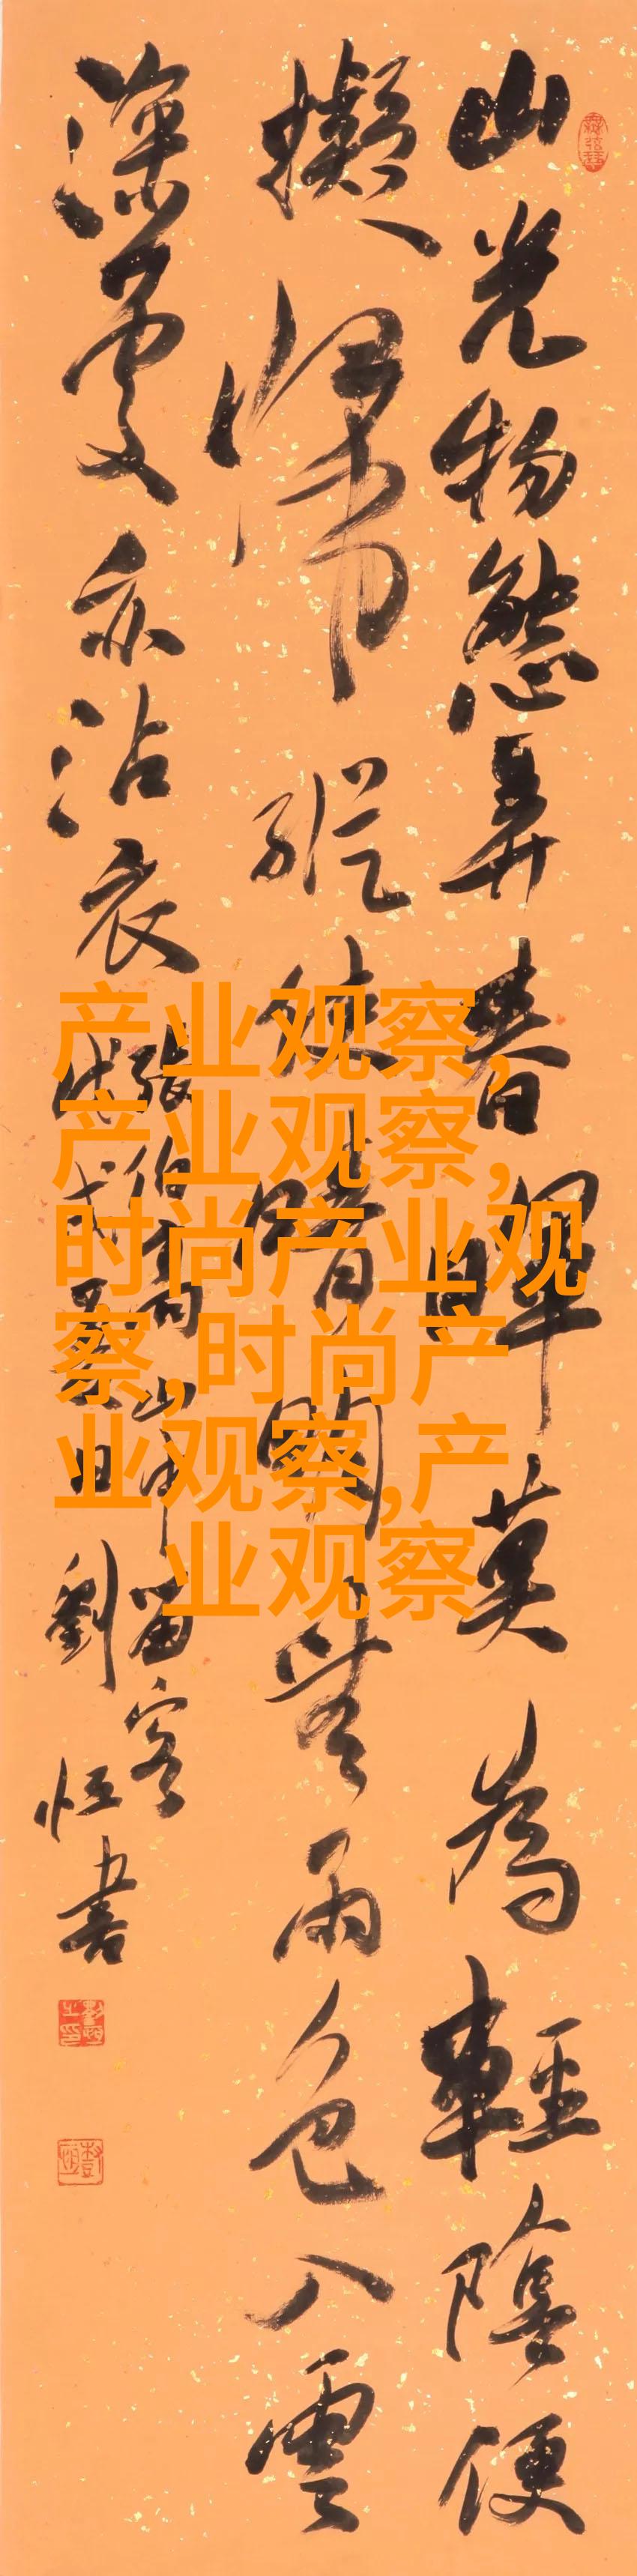 山光物態弄春暉莫為輕陰便
擬歸縱使晴明無雨色入雲
深處亦沾衣
張伯高山中留客
日劉恒書
产业观察,
产业观察,
时尚产业观
察,时尚产
业观察,产
业观察